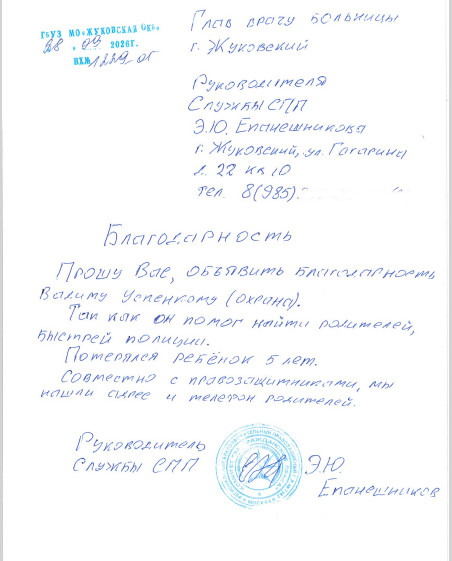 ГБУЗ МО «ЖУКОВСКАЯ ОКБ»
28 09 2020г.
ВХ№ 1229-ОГ
Глав врачу больницы
г. Жуковский
Руководителя
Службы СПП
Э.Ю. Епанешникова
г. Жуковский, ул. Гагарина
д. 22 кв 10
тел. 8(985).
Благодарность
Прошу Вас, объявить благодарность
Вадиму Успенкому (охрана).
Так как он помог найти родителей,
быстрей полиции.
Потерялся ребёнок 5 лет.
Совместно с правозащитниками, мы
нашли адрес и телефон родителей.
Руководитель
Службы СПП
Э.Ю.
Епанешников